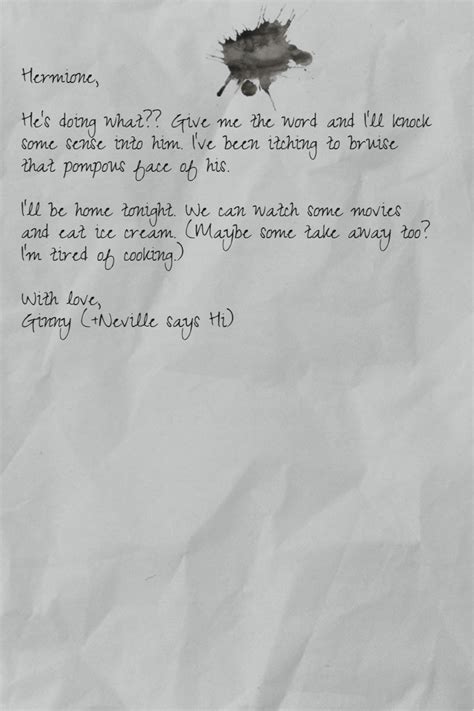 Hermione,
He's doing what?? Give me the word and I'll knock
some sense into him. I've been itching to bruise
that pompous face of his.
I'll be home tonight. We can watch some movies
and eat ice cream. (Maybe some take away too?
I'm tired of cooking.)
With love,
Ginny (+Neville says Hi)